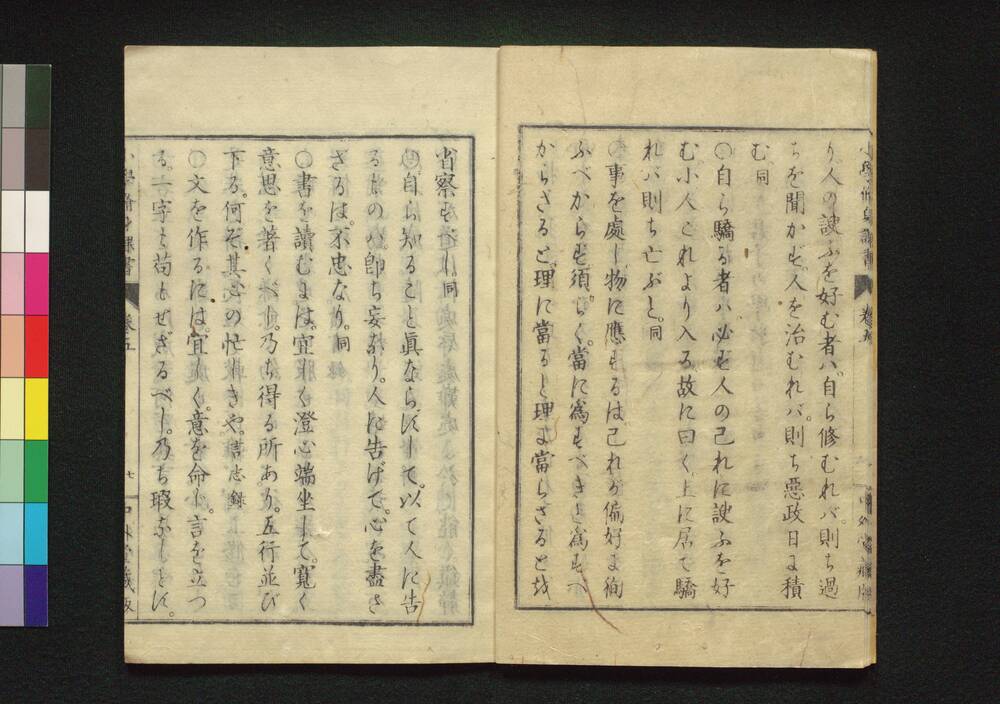 り、人の諛ふを好む者ハ、自ら修むれバ、則ち過
ちを聞かず、人を治むれバ、則ち惡政日に積
む、同
〇自ら驕る者ハ、必ず人の己れに諛ふを好
む、小人これより入る、故に曰く、上に居て驕
れバ則ち亡ぶと。同
〇事を處し物に應ずるは、己れが偏好に徇
ふべからず、須らく、當に爲すべきと爲すべ
からざると、理に當ると理に當らざるとを
省察すべし、同
〇自ら知ること眞ならずして、以て人に告
るものハ、卽ち妄なり。人に告げて、心を盡さ
ざるは、不忠なり。同
〇書を讀むには、宜しく澄心端坐して、寬く
意思を著くべし。乃ち得る所あり。五行並び
下る。何ぞ其心の忙しきや。言志錄
〇文を作るには、宜しく、意を命じ、言を立つ
る。一字も苟もせざるべし。乃ち瑕なしとす。
卷五
七